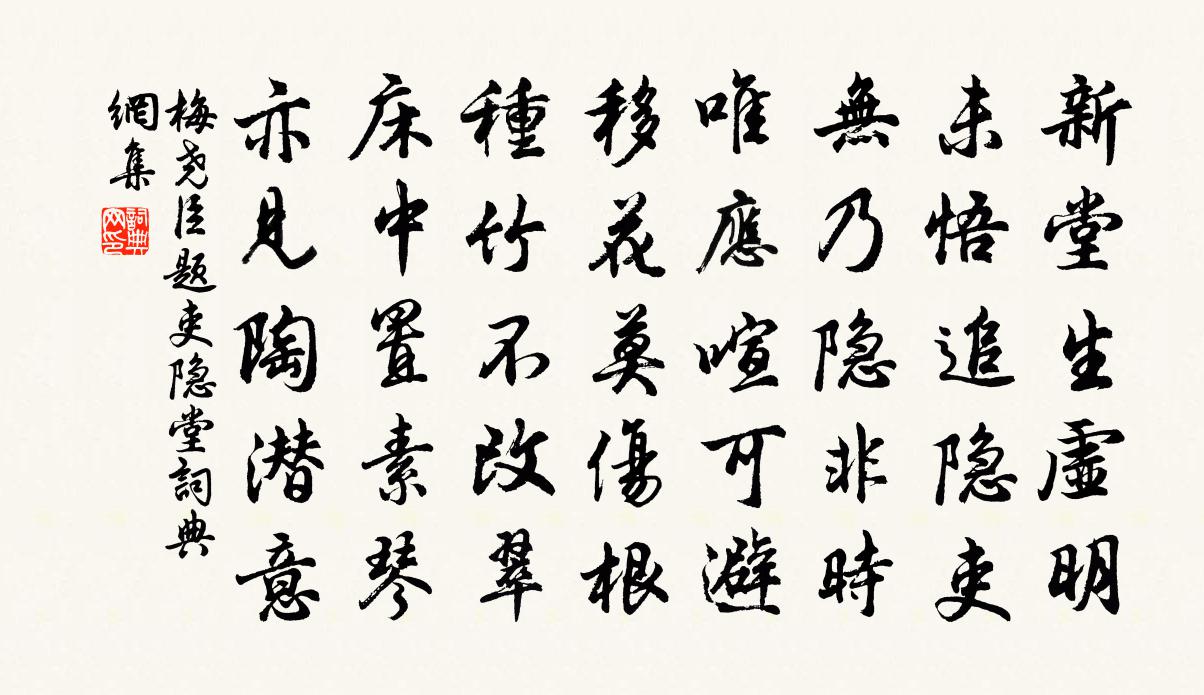 新堂生虛明
未悟追隐吏
無乃隐非時
唯應喧可避
移花莫傷根
種竹不改翠
床中置素琴
亦見陶潜意
梅尧臣题吏隐堂詞典
網集
詞典
网印